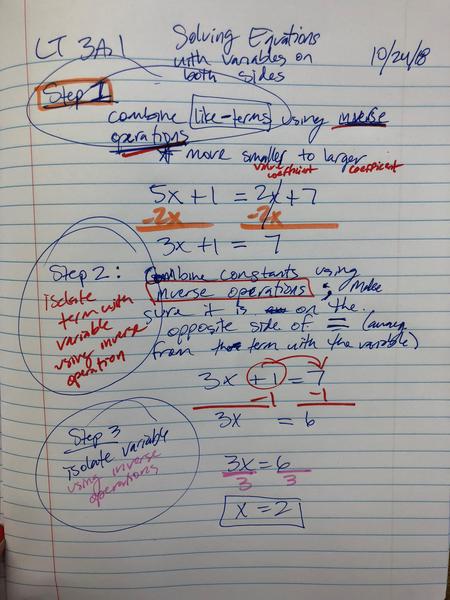 LT 3A.1
Solving Equations
with variables on
both sides
10/24/18
Step 1
combine like-terms using inverse
operations
* move smaller to larger
coefficient coefficient
5x + 1 = 2x + 7
-2x -2x
3x + 1 = 7
Step 2:
isolate
term with
variable
using inverse
operation
Combine constants using
inverse operations; make
sure it is on the
opposite side of = (away
from the term with the variable)
3x + 1 = 7
-1 -1
3x = 6
Step 3
isolate variable
using inverse
operations
3x = 6
3 3
x = 2